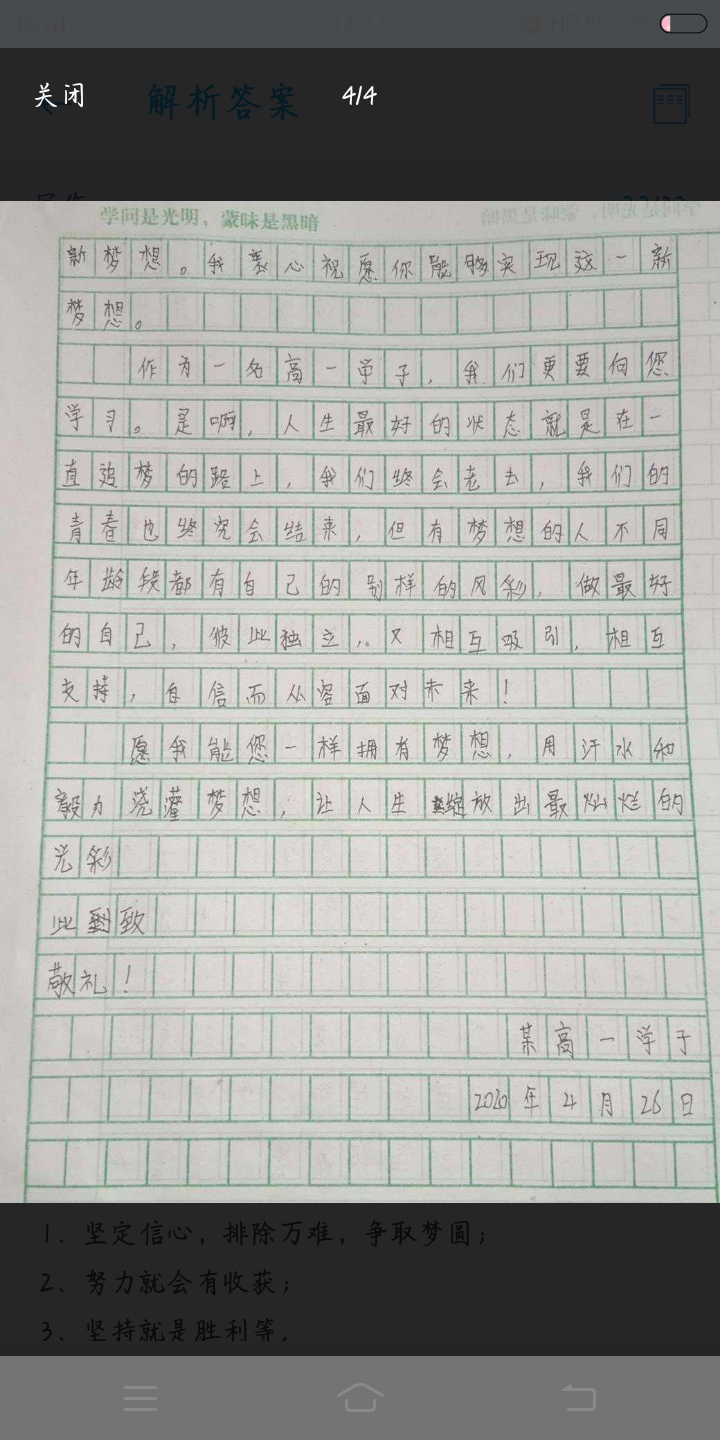 关闭
4/4
解析答案
学问是光明，蒙昧是黑暗
新梦想。我衷心祝愿你能够实现这一新
梦想。
作为一名高一学子，我们更要向您
学习。是啊，人生最好的状态就是在一
直追梦的路上，我们终会老去，我们的
青春也终究会结束，但有梦想的人不同
年龄段都有自己的别样的风彩，做最好
的自己，彼此独立，又相互吸引，相互
支持，自信而从容面对未来！
愿我能您一样拥有梦想，用汗水和
毅力浇灌梦想，让人生绽放出最灿烂的
光彩
此致
敬礼！
某高一学子
2020年4月26日
1、坚定信心，排除万难，争取梦圆；
2、努力就会有收获；
3、坚持就是胜利等。